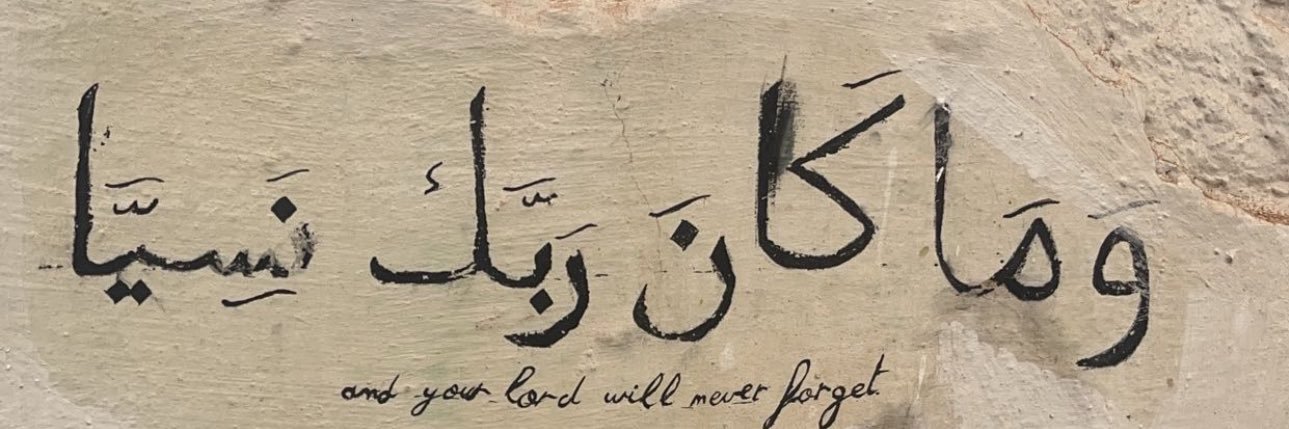 وَمَا كَانَ رَبَّكَ نَسِيَّا
and your lord will never forget